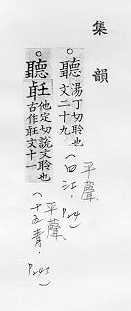 集韻
聽 湯丁切聆也
文二十九
平聲
(四江, P24)
聽𦔻 他定切說文聆也
古作𦔻文十一
平聲
(十五青, P243)